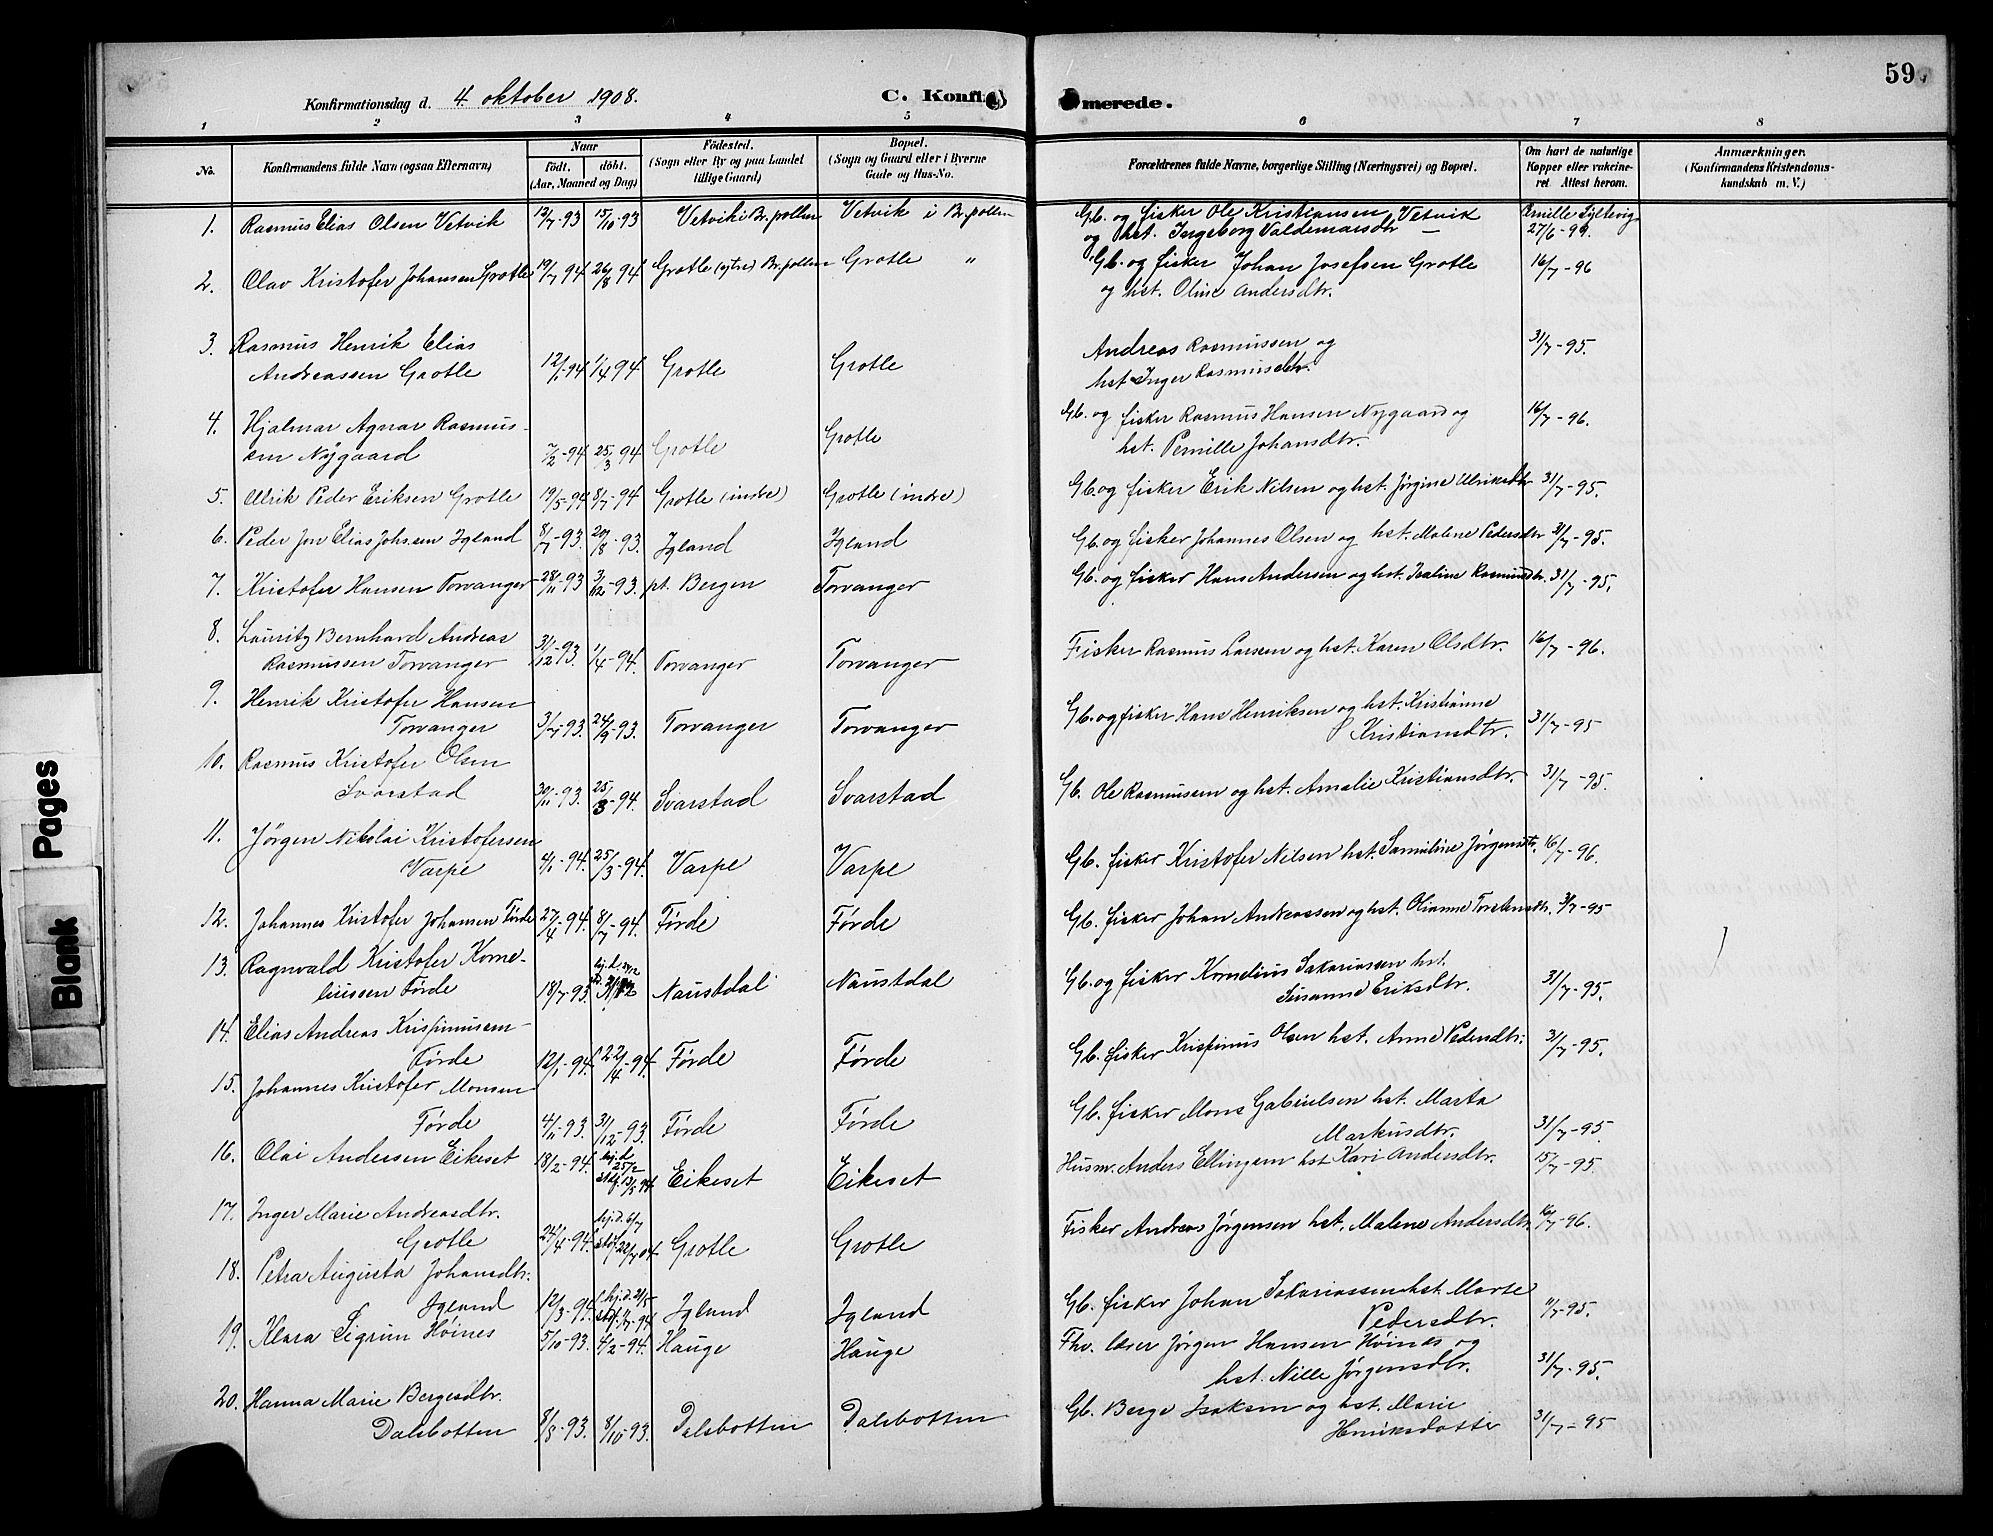 59
Konfirmationsdag d. 4. oktober 1908.
C. Konfi merede.
1 2 3 4 5 6 7 8
No. Konfirmandens fulde Navn (ogsaa Efternavn) Naar födt. döbt. (Aar, Maaned og Dag) Födested. (Sogn eller By og paa Landet tillige Gaard) Bopæl. (Sogn og Gaard eller i Byerne Gade og Hus-No. Forældrenes fulde Navne, borgerlige Stilling (Næringsvei) og Bopæl. Om havt de naturlige Kopper eller vakcineret. Attest herom. Anmærkninger. (Konfirmandens Kristendomskundskab m. V.)
1. Rasmus Elias Olsen Vetvik 12/7-93 15/10-93 Vetvik i Br.pollen Vetvik i Br.pollen Gb. og fisker Ole Kristiansen Vetvik
og hst. Ingeborg Valdemarsdtr — 27/6-99.
2. Olav Kristofer Johansen Grotle 19/7 94 26/8 94 Grotle (ytre) Br.pollen Grotle " Gb. og fisker Johan Josefsen Grotle 16/7-96
og hst. Oline Andersdtr.
3. Rasmus Henrik Elias Andreas Rasmussen og 31/7-95.
Andreassen Grotle 12/1-94 1/4 94 Grotle Grotle hst Inger Rasmusdtr.
4. Hjalmar Agnar Rasmus- Gb. og fisker Rasmus Hansen Nygaard og 16/7-96.
sen Nygaard 7/2-94 25/3 94 Grotle Grotle hst. Pernille Johansdtr.
5. Ulrik Peder Eriksen Grotle 19/5-94 8/7-94 Grotle (indre) Grotle (indre) Gb. og fisker Erik Nilsen og hst. Jørgine Ulriksdtr 31/7-95.
6. Peder Jon Elias Johs.sen Igland 8/7-93. 20/8-93. Igland Igland Gb. og fisker Johannes Olsen og hst. Malene Pedersdtr 31/7-95.
7. Kristofer Hansen Torvanger 28/11-93 3/12-93. pt. Bergen Torvanger Gb. og fisker Hans Andersen og hst. Rasmusdtr. 31/7-95.
8. Lauritz Bernhard Andreas
Rasmussen Torvanger 31/12-93. 1/4-94. Torvanger Torvanger Fisker Rasmus Larsen og hst. Karen Olsdtr. 16/7-96.
9. Henrik Kristofer Hansen Gb. og fisker Hans Henriksen og hst. Kristianne
Torvanger 3/7-93. 24/9-93. Torvanger Torvanger Kristiansdtr. 31/7-95
10. Rasmus Kristofer Olsen
Svarstad 30/11-93. 25/3-94. Svarstad Svarstad Gb. Ole Rasmussen og hst. Amalie Kristiansdtr. 31/7-95.
11. Jörgen Nikolai Kristofersen
Varpe 4/1-94. 25/3-94. Varpe Varpe Gb. fisker Kristofer Nilsen hst. Samuline Jørgensdtr. 16/7-96.
12. Johannes Kristofer Johansen Førde 27/4-94. 8/7-94. Førde Førde Gb. fisker Johan Andreassen og hst. Olianne Torstensdtr. 31/7-95
13. Ragnvald Kristofer Korne- Gb. og fisker Kornelius Sakariassen hst.
liussen Førde 18/7-93 Naustdal Naustdal Susanne Eriksdtr. 31/7-95.
14. Elias Andreas Krispinusen
Førde 12/1-94. 22/4-94. Førde Førde Gb. fisker Krispinus Olsen hst. Anne Pedersdtr. 31/7-95.
15. Johannes Kristofer Monsen Gb. fisker Mons Gabrielsen hst. Marta
Førde 4/11-93. 31/12-93. Førde Førde Markusdtr. 31/7-95.
16. Olai Andersen Eikeset 18/2-94. hj.d. 25/2 stdf. 13/5 94 Eikeset Eikeset Husm. Anders Ellingsen hst Kari Andersdtr. 15/7-95.
17. Inger Marie Andreasdtr. Fisker Andreas Jørgensen hst. Malene Andersdtr. 16/7-96.
Grotle 24/4-94. hj.d. 6/7 Grotle Grotle
18. Petra Augusta Johansdtr. Gb. fisker Johan Sakariassen hst. Marte
Igland 12/3-94. hj.d. 21/5 Igland Igland Pedersdtr. 11/7-95.
19. Klara Sigrun Höines 5/10-93. 4/2-94. Hauge Hauge Fhv. lærer Jørgen Hansen Höines og
hst. Nille Jørgensdtr. 31/7-95.
20. Hanna Marie Bergesdtr. Gb. Berge Isaksen og hst. Marie
Dalsbotten 8/8-93. 8/10-93. Dalsbotten Dalsbotten Henriksdatter 31/7-95
Blank Pages